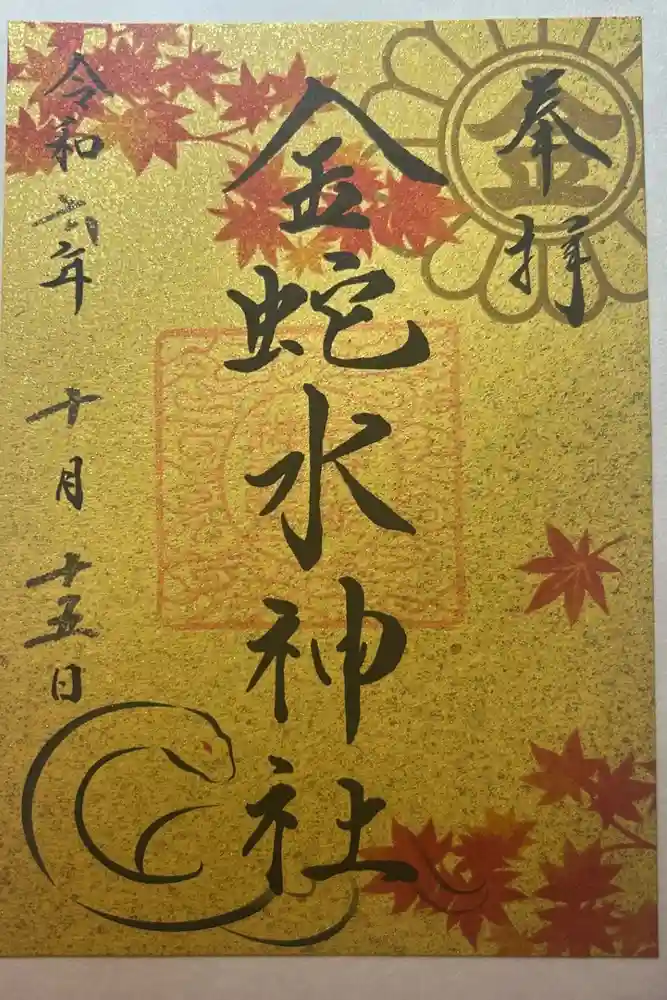 奉拝
金蛇水神社
令和六年 十月 十五日